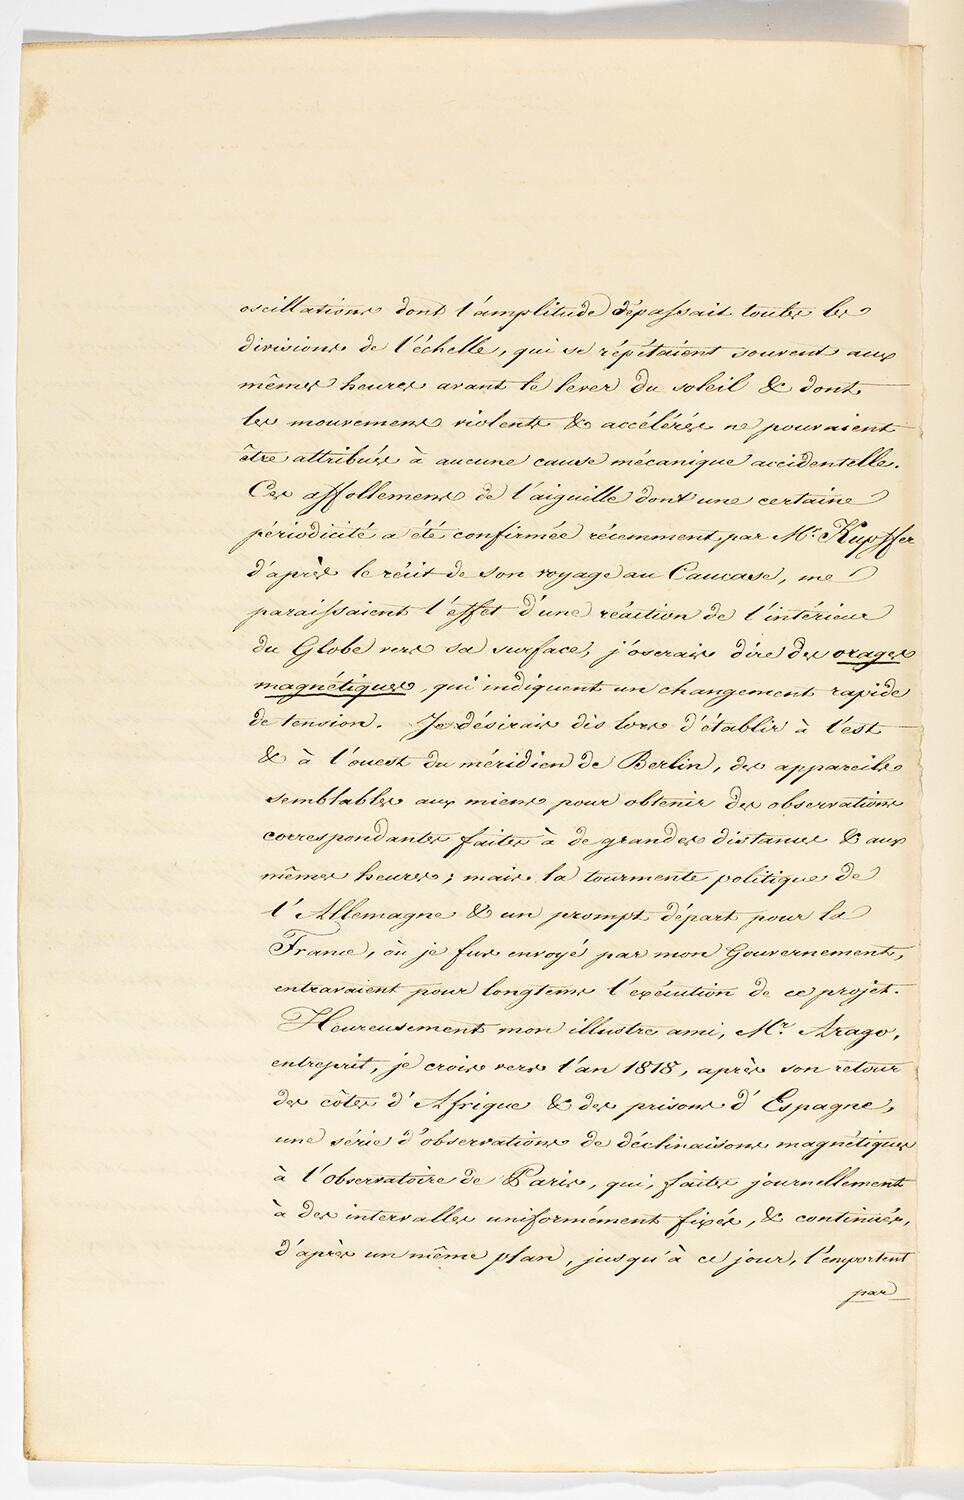 oscillations dont l'amplitude dépassait toutes les
divisions de l'échelle, qui se répétaient souvent aux
mêmes heures avant le lever du soleil & dont
les mouvemens violents & accélérés ne pouvaient
être attribués à aucune cause mécanique accidentelle.
Ces affollemens de l'aiguille dont une certaine
périodicité a été confirmée récemment par Mr. Kupffer
d'après le récit de son voyage au Caucase, me
paraissaient l'effet d'une réaction de l'intérieur
du Globe vers sa surface, j'oserais dire des orages
magnétiques, qui indiquent un changement rapide
de tension. Je désirais dès lors d'établir à l'est
& à l'ouest du méridien de Berlin, des appareils
semblables aux miens pour obtenir des observations
correspondantes faites à de grandes distances & aux
mêmes heures; mais la tourmente politique de
l'Allemagne & un prompt départ pour la
France, où je fus envoyé par mon Gouvernement,
entravaient pour longtems l'exécution de ce projet.
Heureusement mon illustre ami, Mr. Arago,
entreprit, je crois vers l'an 1818, après son retour
des côtes d'Afrique & des prisons d'Espagne,
une série d'observations de déclinaisons magnétiques
à l'observatoire de Paris, qui, faites journellement
à des intervalles uniformément fixés, & continués,
d'après un même plan, jusqu'à ce jour, l'emportent
par